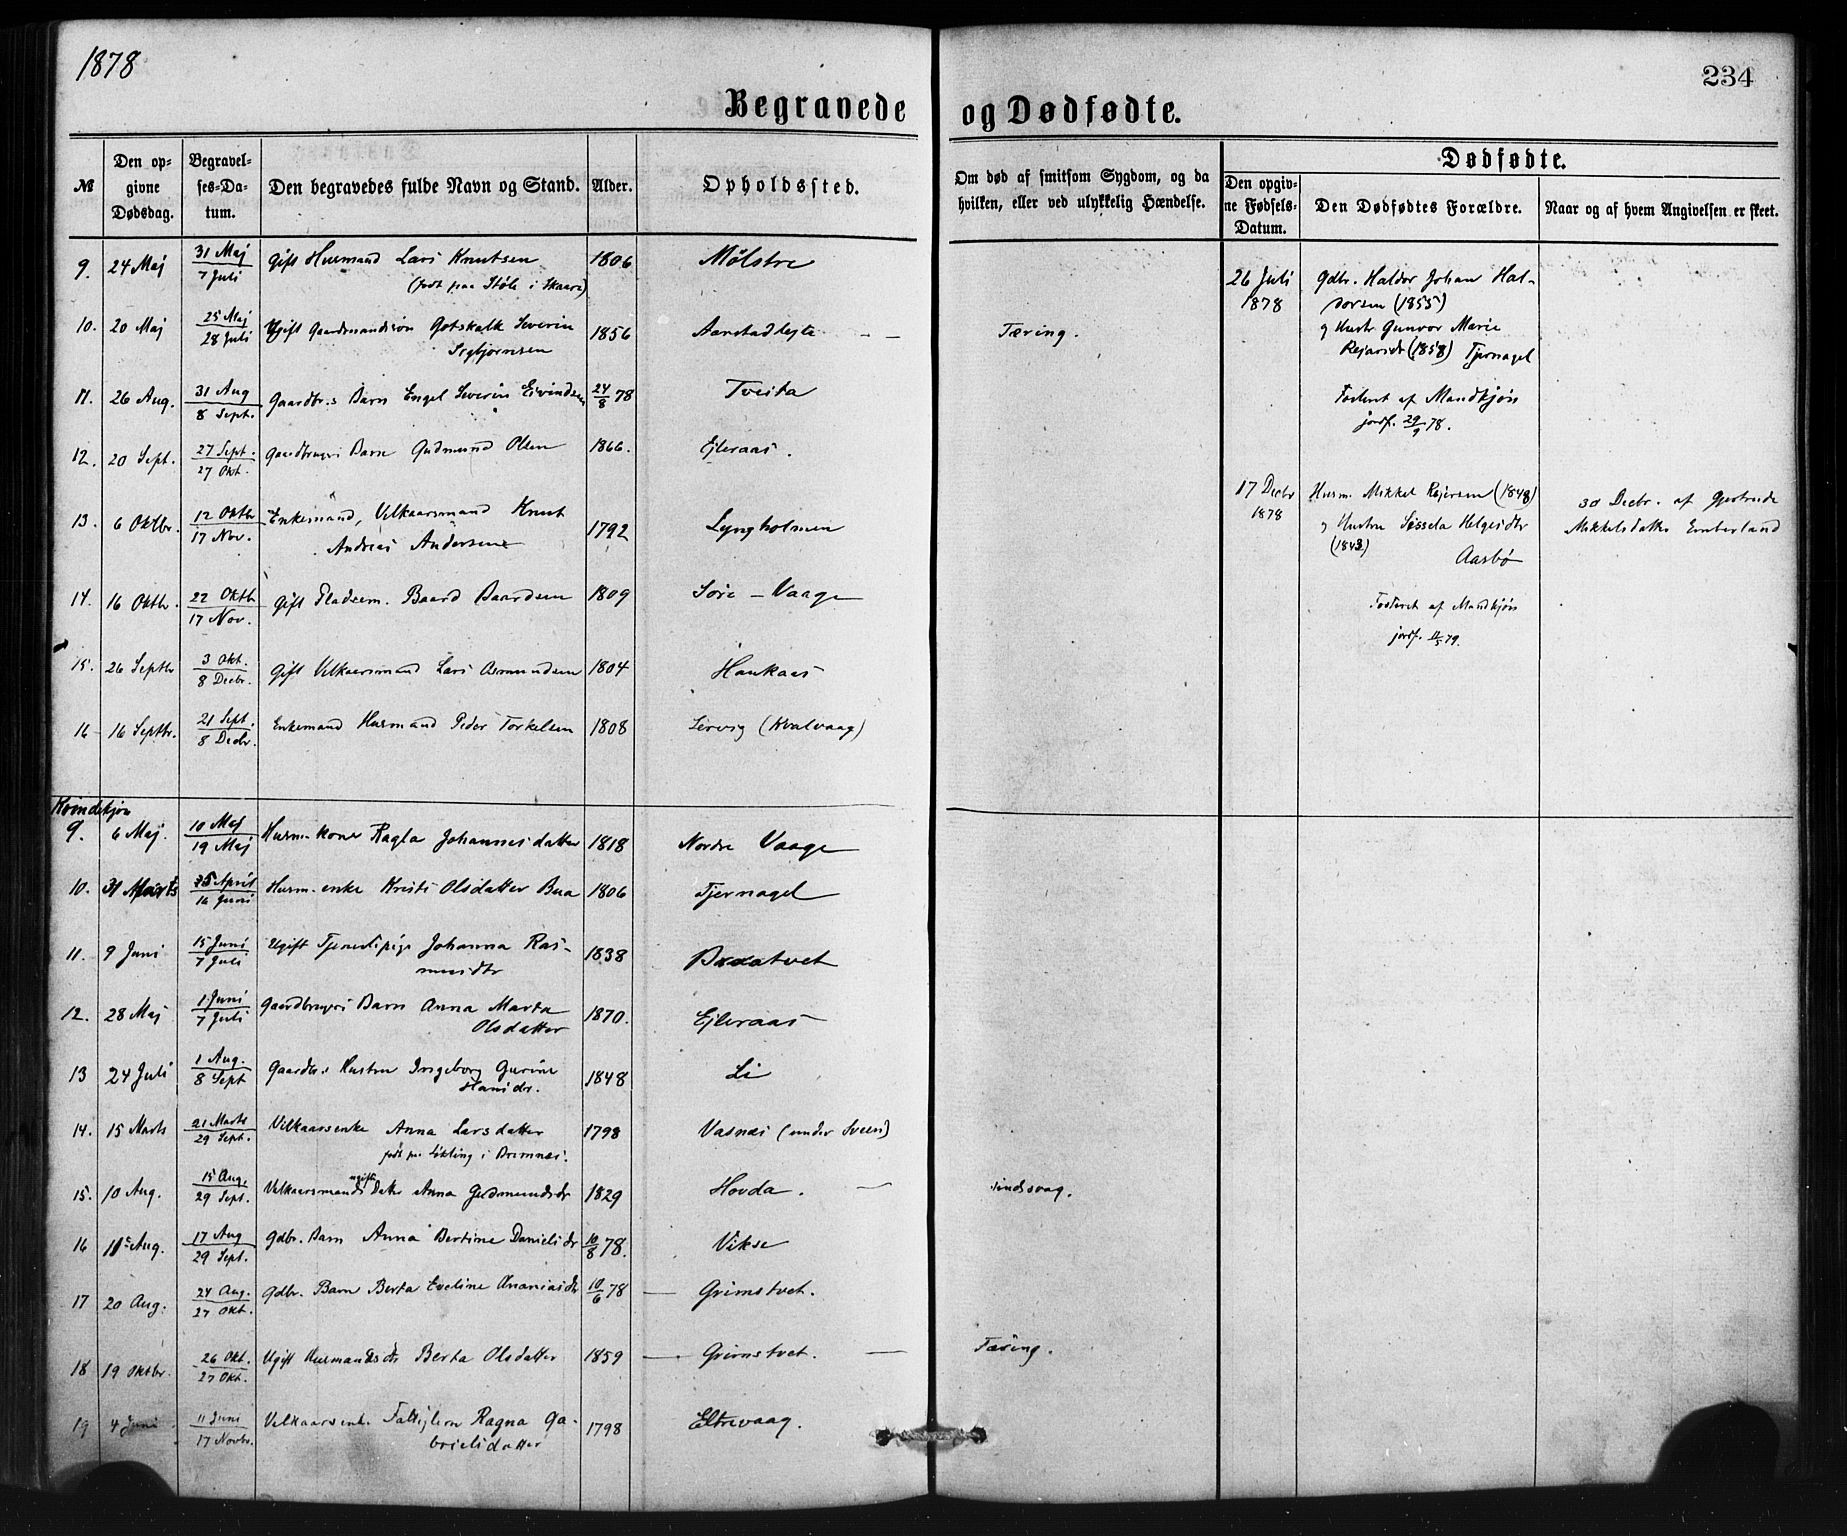 1878
234
Begravede og Dødfødte.
№
Den opgivne Dødsdag.
Begravelses-Datum.
Den begravedes fulde Navn og Stand.
Alder.
Opholdssted.
Om død af smitsom Sygdom, og da hvilken, eller ved ulykkelig Hændelse.
Dødfødte.
Den opgivne Fødsels-Datum.
Den Dødfødtes Forældre.
Naar og af hvem Angivelsen er skeet.
9. 24 Maj 31 Maj / 7 Juli Gift Husmand Lars Knutsen 1806 Mølstre
(født paa Støle i Skaare)
10. 20 Maj 25 Maj / 28 Juli Ugift Gaardmandssøn Gotskalk Severin 1856 Aanstadlejte - - Tæring.
Sigbjørnsen
11. 26 Aug. 31 Aug / 8 Sept. Gaardbr.s Barn Engel Severin Eivindsen 24/8 78 Tveita
12. 20 Sept. 27 Sept. / 27 Okt. Gaardbrugers Barn Gudmund Olsen 1866. Ejleraas.
13. 6 Oktbr. 12 Oktbr / 17 Nov. Enkemand, Vilkaarsmand Knut 1792 Lyngholmen
Andreas Andersen
14. 16 Oktbr. 22 Oktb / 17 Nov. Gift Pladsem. Baard Baardsen 1809 Søre - Vaage
15. 26 Septbr 3 Okt. / 8 Decbr. Gift Vilkaarsmand Lars Asmundsen 1804 Haukaas
16 16 Septbr. 21 Sept. / 8 Decbr. Enkemand Husmand Peder Torkelsen 1808 Lervig (Kvalvaag)
26 Juli 1878
Gdbr. Haldor Johan Haldorsen (1855)
og Hustr Gunvor Marie
Rejarsdt (1858) Tjernagel
Fosteret af Mandkjøn
jordf. 29/9 78.
17 Decbr 1878
Husm. Mikkel Rejersen (1848)
og Hustru Sissela Helgesdtr
(1843)
Aasbø
Fosteret af Mandkjøn
30 Decbr. af Gjertrude
Mikkelsdatter Emberland
Kvindekjøn
9. 6 Maj. 10 Maj / 19 Maj Husm.kone Ragla Johannesdatter 1818 Nordre Vaage
10. 31 Marts 5 April / 16 Juni Husm.enke Kristi Olsdatter Bua 1806 Tjernagel
11. 9 Juni 15 Juni / 7 Juli Ugift Tjenestepige Johanna Ras- 1838
musdtr
12. 28 Maj 1 Juni / 7 Juli Gaardbrugers Barn Anna Marta 1870. Ejleraas
Olsdatter
13 24 Juli 1 Aug. / 8 Sept Gaardbr.s Hustru Ingeborg Gurine 1848 Li
Hansdr.
14. 15 Marts 21 Marts / 29 Sept. Vilkaarsenke Anna Larsdatter 1798 Vasnæs (under Sveen)
født paa Løkling i Bremnæs.
15. 10 Aug. 15 Aug. / 29 Sept. Vilkaarsmands ugifte Datter Anna Gudmundsdr 1829 Hovda. - sindsvag.
16 11 Aug. 17 Aug / 29 Sept. Gdbr. Barn Anna Bertine Danielsdr 10/8 78. Vikse
17 20 Aug. 24 Aug. / 27 Okt. Gdbr. Barn Berta Eveline Ananiasdtr 10/6 78 - Grimstvet.
18 19 Oktbr. 26 Okt. / 27 Okt. Ugift Husmandsdtr Berta Olsdatter 1859 - Grimstvet. - Tæring.
19 4 Juni 11 Juni / 17 Novbr. Vilkaarsenke Ragna Ga- 1798 Eltrevaag.
brielsdatter